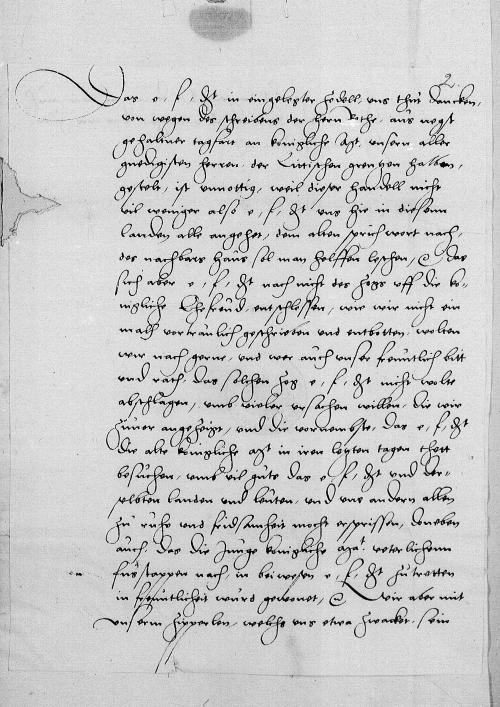 2
Das e, f, dt in eingelegter Zedell uns thut dancken,
von wegen des schreibens der hern Rethe, auff negst
gehaltner tagfart an konigliche Mt, unsern aller
gnedigisten herren, der Littischen grentzen halben,
gestelt, ist unnottig, weil dieser handell nicht
vil weniger also e, f, dt uns hie in diessenn
landen alle angehet, dem alten sprichwort nach,
des nachbars haus sol man helffen leschen, &. Das
sich aber e, f, dt nach nicht des zogs uff die ko-
nigliche Ehefreud, entschlossen, wie wir nicht ein
malh vertraulich geschrieben und entbotten, wolten
wir nach gerne, und wer auch unser freuntlich bitt
und rath, das solchen zog e, f, dt nicht wolte
abschlagen, umb vieler ursachen willen, die wir
zuvor angezeigt, und die vornembste, das e, f, dt
die alte konigliche Mt in iren letzten tagen thett
besuchen, umb vil gute das e, f, dt und der-
selbten landen und leuten, und uns andern allen
zu ruhe und fridsamheit mocht erspriessen, doneben
auch, das die Junge konigliche Mat veterlichenn
fusstappen nach, in beiwesen e, f, dt zutretten
in freuntlicheit wurd gewonet, & Wir aber mit
unserm Zipperlen, welchs uns etwa zwackt, sein